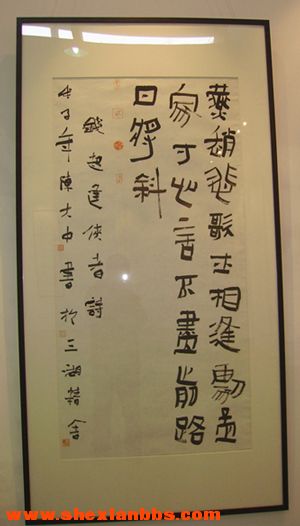 燕趙悲歌士相逢劇孟
家寸心言不盡前路
日將斜
錢起逢俠者詩
戊子年陳大中書於三湖舍
www.shexianbbs.com